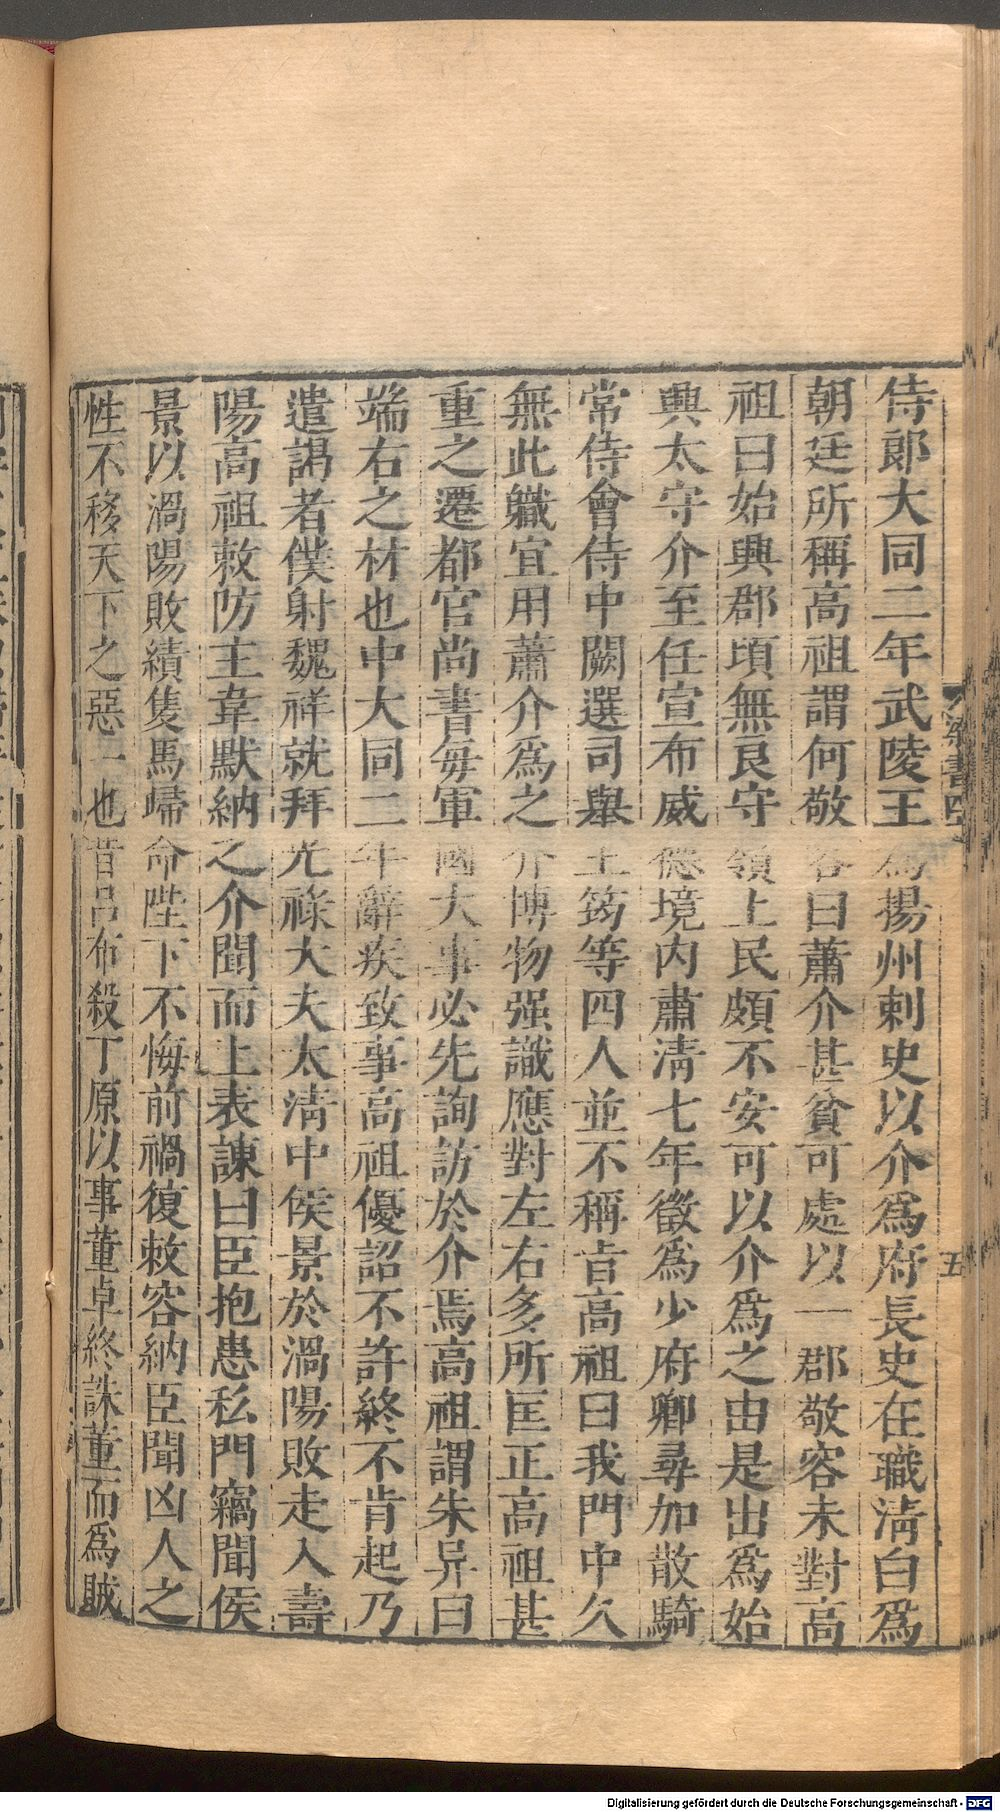 侍郎大同二年武陵王為揚州刺史以介為府長史在職淸白為
朝廷所稱高祖謂何敬容曰蕭介甚貧可處以一郡敬容未對高
祖曰始興郡頃無良守嶺上民頗不安可以介為之由是出為始
興太守介至任宣布威德境內肅淸七年徵為少府卿尋加散騎
常侍會侍中闕選司舉王筠等四人並不稱旨高祖曰我門中久
無此職宜用蕭介為之介博物强識應對左右多所匡正高祖甚
重之遷都官尚書每軍國大事必先詢訪於介焉高祖謂朱异曰
端右之材也中大同二年辭疾致事高祖優詔不許終不肯起乃
遣謁者僕射魏祥就拜光祿大夫太淸中侯景於渦陽敗走入壽
陽高祖敕防主韋默納之介聞而上表諫曰臣抱患私門竊聞侯
景以渦陽敗績隻馬歸命陛下不悔前禍復敕容納臣聞凶人之
性不移天下之惡一也昔呂布殺丁原以事董卓終誅董而為賊
五
Digitalisierung gefördert durch die Deutsche Forschungsgemeinschaft - DFG